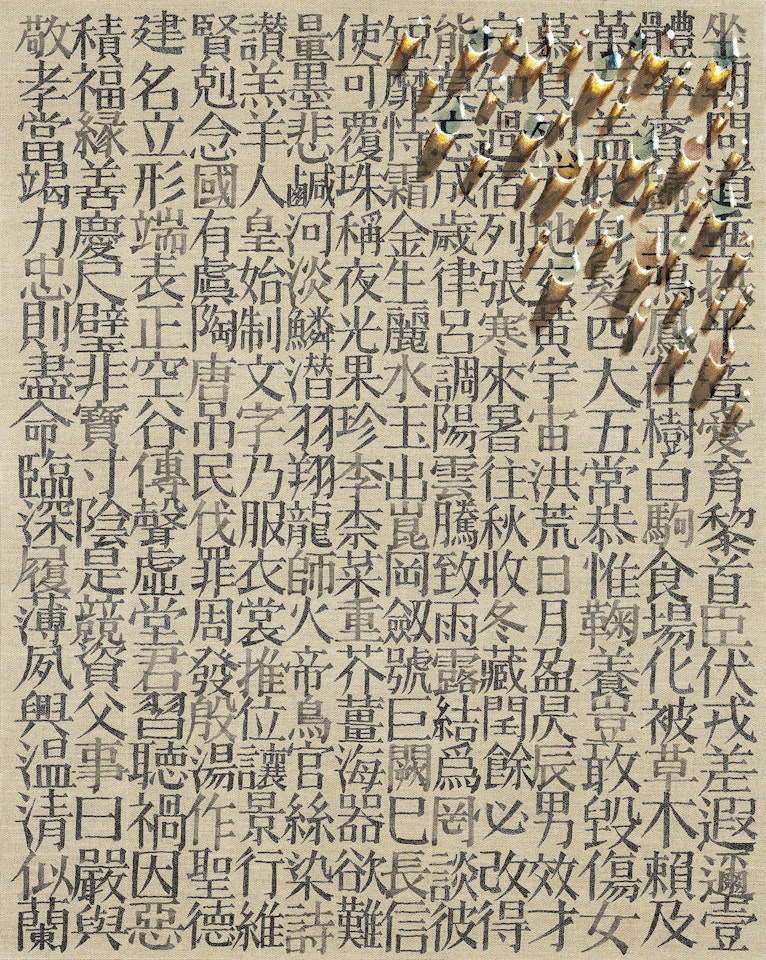 坐朝問道垂拱平章愛育黎首臣伏戎差遐邇壹
體率賓歸王鳴鳳在樹白駒食場化被草木賴及
萬蓋此身髮四大五常恭惟鞠養豈敢毀傷女
慕貞地玄黃宇宙洪荒日月盈昃辰男效才
良知過宿列張寒來暑往秋收冬藏閏餘必改得
能莫忘成歲律呂調陽雲騰致雨露結爲罔談彼
短靡恃霜金生麗水玉出崑岡劔號巨闕巳長信
使可覆珠稱夜光果珍李柰菜重芥薑海器欲難
量墨悲鹹河淡鱗潛羽翔龍師火帝鳥官絲染詩
讃羔羊人皇始制文字乃服衣裳推位讓景行維
賢剋念國有虞陶唐吊民伐罪周發殷湯作聖德
建名立形端表正空谷傳聲虛堂君習聽禍因惡
積福緣善慶尺璧非寶寸陰是競資父事曰嚴與
敬孝當竭力忠則盡命臨深履薄夙興温清似蘭